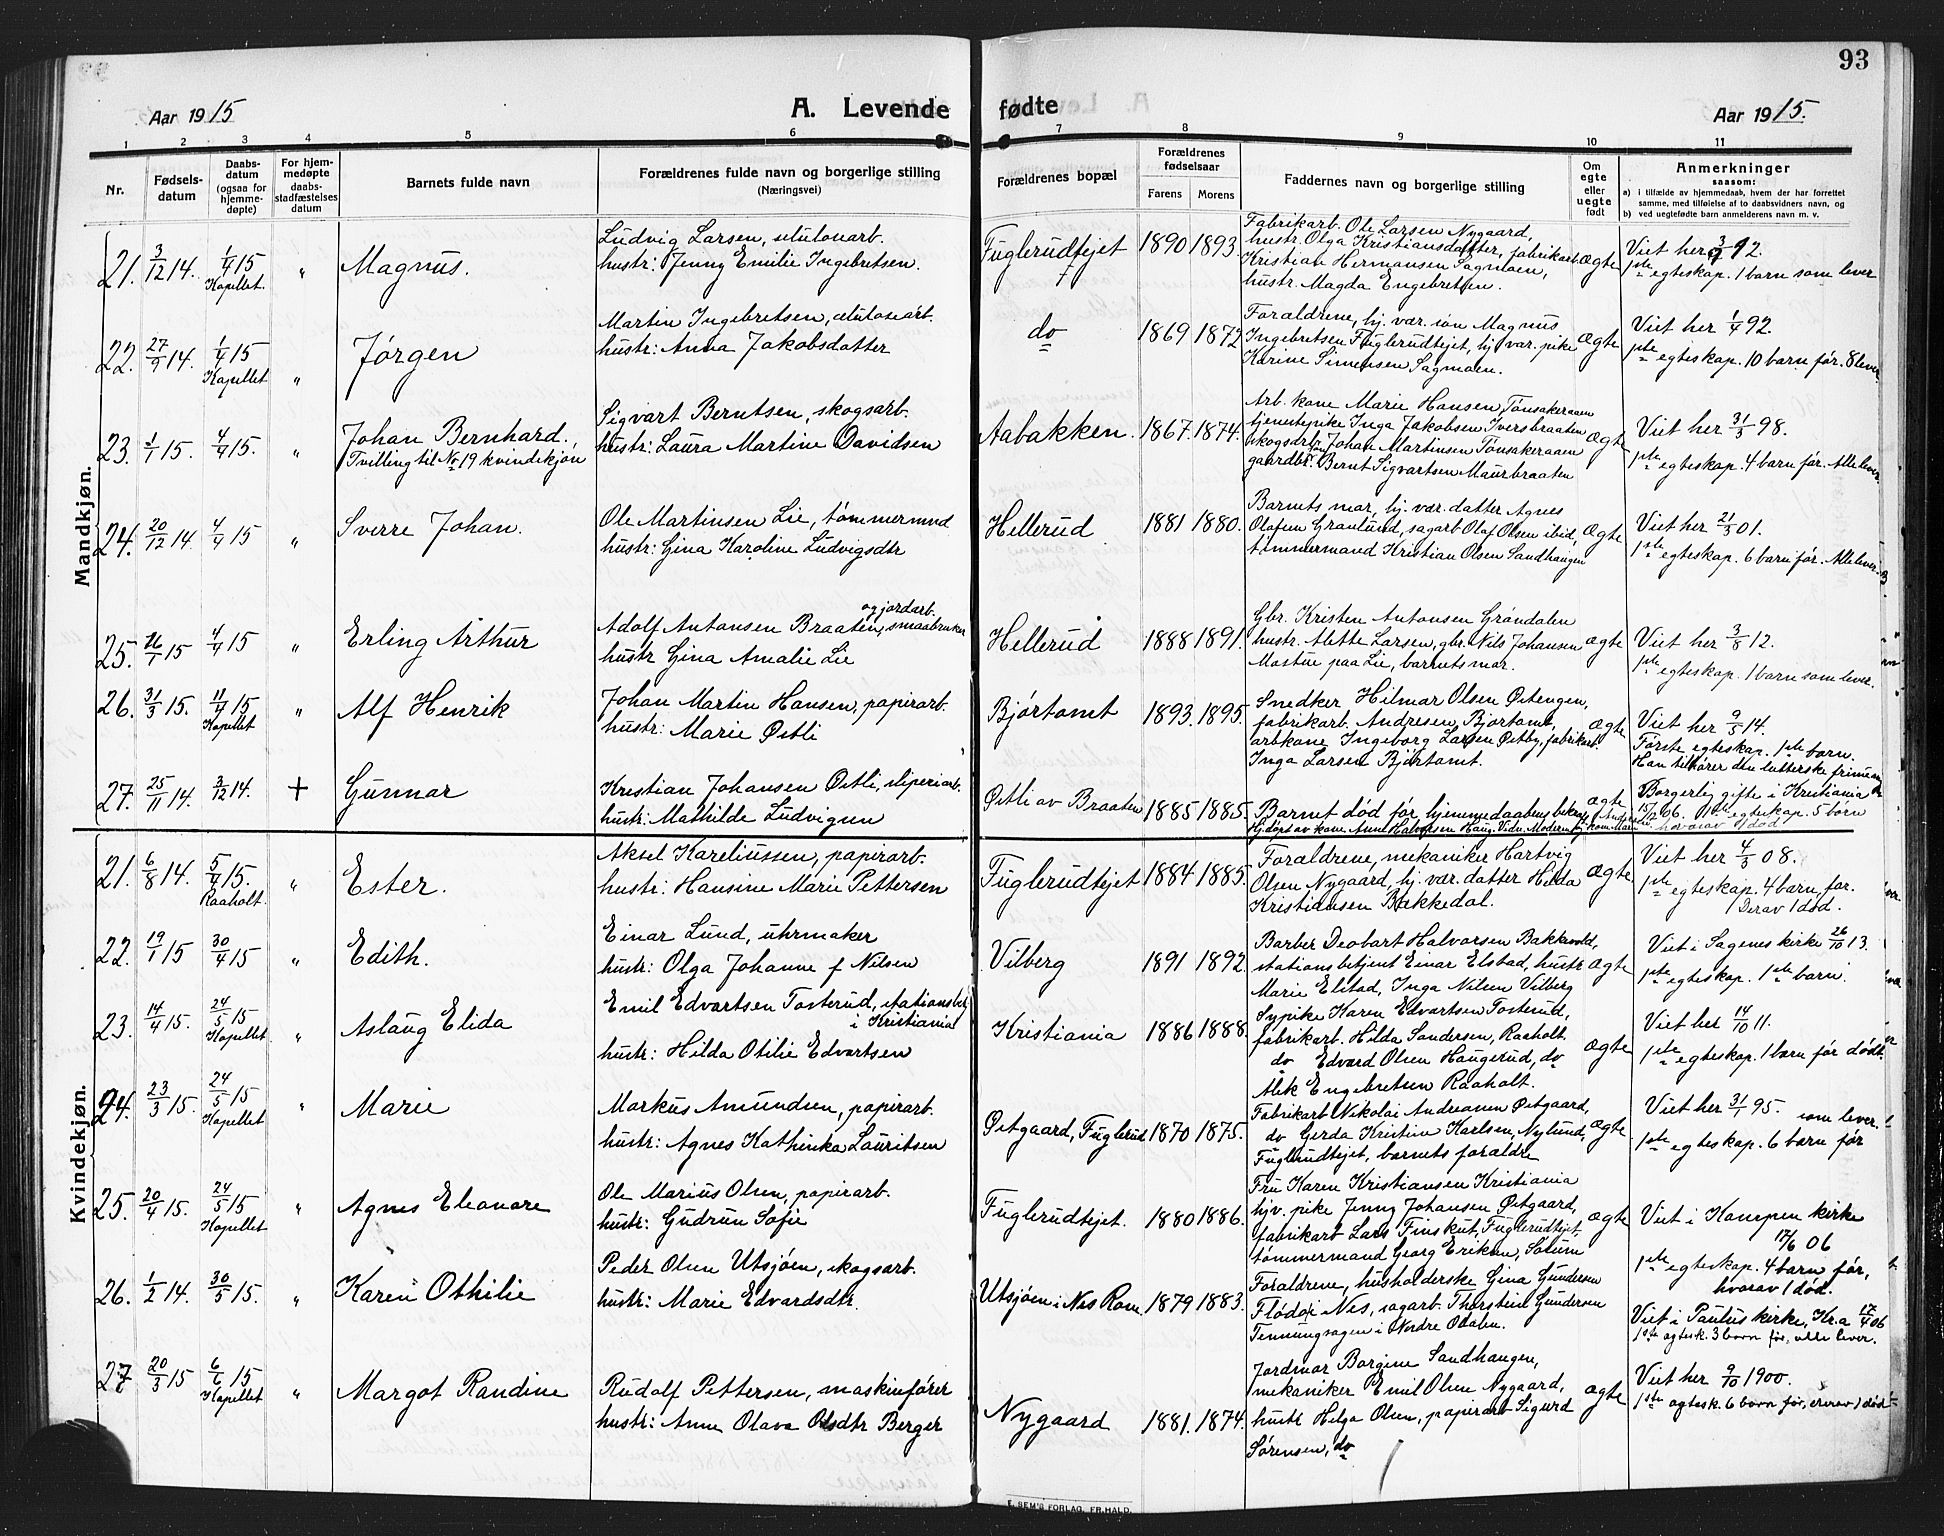 93
Aar 1915
A. Levende fødte
Aar 1915.
1 2 3 4 5 6 7 8 9 10 11
Nr.
Fødsels-
datum
Daabs-
datum
(ogsaa for
hjemme-
døpte)
For hjem-
medøpte
daabs-
stadfæstelses
datum
Barnets fulde navn
Forældrenes fulde navn og borgerlige stilling
(Næringsvei)
Forældrenes bopæl
Forældrenes
fødselsaar
Farens Morens
Faddernes navn og borgerlige stilling
Om
egte
eller
uegte
født
Anmerkninger
saasom:
a) i tilfælde av hjemmedaab, hvem der har forrettet
samme, med tilføielse af to daabsvidners navn, og
b) ved uegtefødte barn anmelderens navn m. v.
Mandkjøn.
21. 3/12 14. 1/4 15 Kapellet " Magnus.
Ludvig Larsen, celuloséarb.
hustr: Jenny Emilie Ingebretsen.
Fuglerudfejet 1890 1893.
Fabrikarb. Ole Larsen Nygaard,
hustr. Olga Kristiansdatter, fabrikarb
Kristian Hermansen Sagmoen,
hustr. Magda Engebretsen.
ægte
Viet her 12.
1ste egteskap. 1 barn som lever
22. 27/9 14. 1/4 15 Kapellet " Jørgen
Martin Ingebretsen, celuloséarb.
hustr: Anna Jakobsdatter
do 1869 1872
Forældrene, hj. vær. søn Magnus
Ingebretsen Fuglerudfejet, hj. vær. pike
Karine Simensen Sagmoen.
ægte
Viet her 1/4 92.
1ste egteskap. 10 barn før. 8 lever.
23. 1/1 15. 4/4 15. " Johan Bernhard.,
Tvilling til No 19 kvindekjøn
Sigvart Berntsen, skogsarb.
hustr: Laura Martine Davidsen
Aabakken. 1867. 1874.
Arb. kone Marie Hansen, Tønsakeraaen
tjenestepike Inga Jakobsen Iversbraaten
skogsarb. Johan Martinsen Tønsakeraaen
gaardbr. Bernt Sigvartsen Maurbraaten
ægte
Viet her 31/3 98.
1ste egteskap. 4 barn før. Alle lever.
24. 20/12 14. 4/4 15 " Sverre Johan.
Ole Martinsen Lie, tømmermnd
hustr: Gina Karoline Ludvigsdtr
Hellerud 1881 1880.
Barnets mor, hj. vær. datter Agnes
Olafsen Granlund, sagarb Olaf Olsen ibid,
tømmermand Kristian Olsen Sandhaugen
ægte
Viet her 21/3 01.
1ste egteskap. 6 barn før. Alle lever.
25. 16/1 15 4/4 15 " Erling Arthur
Adolf Antonsen Braaten, smaabruker
og jordarb.
hustr Gina Amalie Lie
Hellerud 1888 1891.
Gbr. Kristen Antonsen Grøndalen
hustr. Alette Larsen, gbr. Nils Johansen
Mostue paa Lie, barnets mor.
ægte
Viet her 3/8 12.
1ste egteskap. 1 barn som lever.
26. 31/3 15. 11/4 15 Kapellet " Alf Henrik
Johan Martin Hansen, papirarb.
hustr: Marie Østli
Bjørtomt 1893. 1895.
Snedker Hilmar Olsen Østengen,
fabrikarb. Andresen, Bjørtomt,
arbkone Ingeborg Larsen Østby, fabrikarb.
Inga Larsen Bjørtomt.
ægte
Viet her 9/5 14.
Første egteskap. 1ste barn.
Han tilhører den lutterske frimenigh
27. 25/11 14. 3/12 14. + Gunnar
Kristian Johansen Østli, sliperiarb.
hustr: Mathilde Ludvigsen
Østli av Braaten 1885 1885.
Barnet død før hjemmedaabens bekræft
Hj.døpt av kone Anne Halvorsen Haug. Vidn. Moderen
ægte
Borgerlig gifte i Kristiania
15/12 06. 1ste egteskap. 5 børn
hvorav 1 død
Kvindekjøn.
21. 6/8 14. 5/4 15. Raaholt. " Ester.
Aksel Kareliussen, papirarb.
hustr: Hansine Marie Pettersen
Fuglerudfejet 1884 1885.
Forældrene, mekaniker Hartvig
Olsen Nygaard, hj. vær. datter Hilda
Kristiansen Bakkedal.
ægte
Viet her 4/3 08.
1ste egteskap. 4 barn, før.
Derav 1 død.
22. 19/1 15 30/4 15 " Edith.
Einar Lund, uhrmaker
hustr: Olga Johanne f Nilsen
Vilberg 1891 1892.
Barber Deobart Halvorsen Bakkevold,
stationsbetjent Einar Elstad, hustr
Marie Elstad, Inga Nilsen Vilberg
ægte
Viet i Sagenes kirke 26/10 13.
1ste egteskap. 1ste barn.
23. 14/4 15. 24/5 15 Kapellet. " Aslaug Elida
Emil Edvartsen Tosterud, stationsbetj.
i Kristiania
hustr: Hilda Otilie Edvartsen
Kristiania 1886 1888.
Sypike Karen Edvartsen Tosterud,
fabrikarb. Hilda Sandersen, Raaholt
do Edvard Olsen Haugerud, do
Alik Engebretsen Raaholt.
ægte
Viet her 14/10 11.
1ste egteskap. 1 barn før dødt.
24. 23/3 15. 24/5 15 Kapellet " Marie
Markus Amundsen, papirarb.
hustr: Agnes Kathinka Lauritsen
Østgaard, Fuglerud 1870 1875.
Fabrikarb Nikolai Andreasen Østgaard,
do Gerda Kristine Karlsen, Nylund,
Fuglerudfejet, barnets forældre
ægte
Viet her 31/1 95.
1ste egteskap. 6 barn før som lever.
25. 20/4 15. 24/5 15 Kapellet " Agnes Eleonore
Ole Marius Olsen, papirarb.
hustr: Gudrun Sofie
Fuglerudfejet. 1880 1886.
Fru Karen Kristiansen Kristiania
hjv. pike Jenny Johansen Østgaard,
fabrikarb Lars Finskut, Fuglerudfejet,
tømmermand Georg Eriksen, Sætum
ægte
Viet i Kampen kirke
17/6 06
1ste egteskap. 4 barn før,
hvorav 1 død.
26. 1/2 14. 30/5 15. " Karen Othilie
Peder Olsen Utsjøen, skogsarb.
hustr: Marie Edvardsdtr.
Utsjøen i Nes Rom. 1879 1883.
Forældrene, husholderske Gina Gundersen
Fløda i Nes, sagarb. Thorstein Gundersen
Tennungsagen i Nordre Odalen.
Viet i Paulus kirke, Kr.a 17/4 06
1ste egtesk. 3 barn før, alle lever.
27 20/3 15 6/6 15 Kapellet " Margot Randine
Rudolf Pettersen, maskinfører
hustr: Anne Olava Olsdtr Berger
Nygaard 1881. 1874.
Jordmor Borgine Sandhaugen,
mekaniker Emil Olsen Nygaard,
hustr Helga Olsen, papirarb Sigurd
Sørensen, do
ægte
Viet her 9/10 1900.
1ste egtesk. 6 barn før, derav 1 død
E. SEM'S FORLAG, FR.HALD.